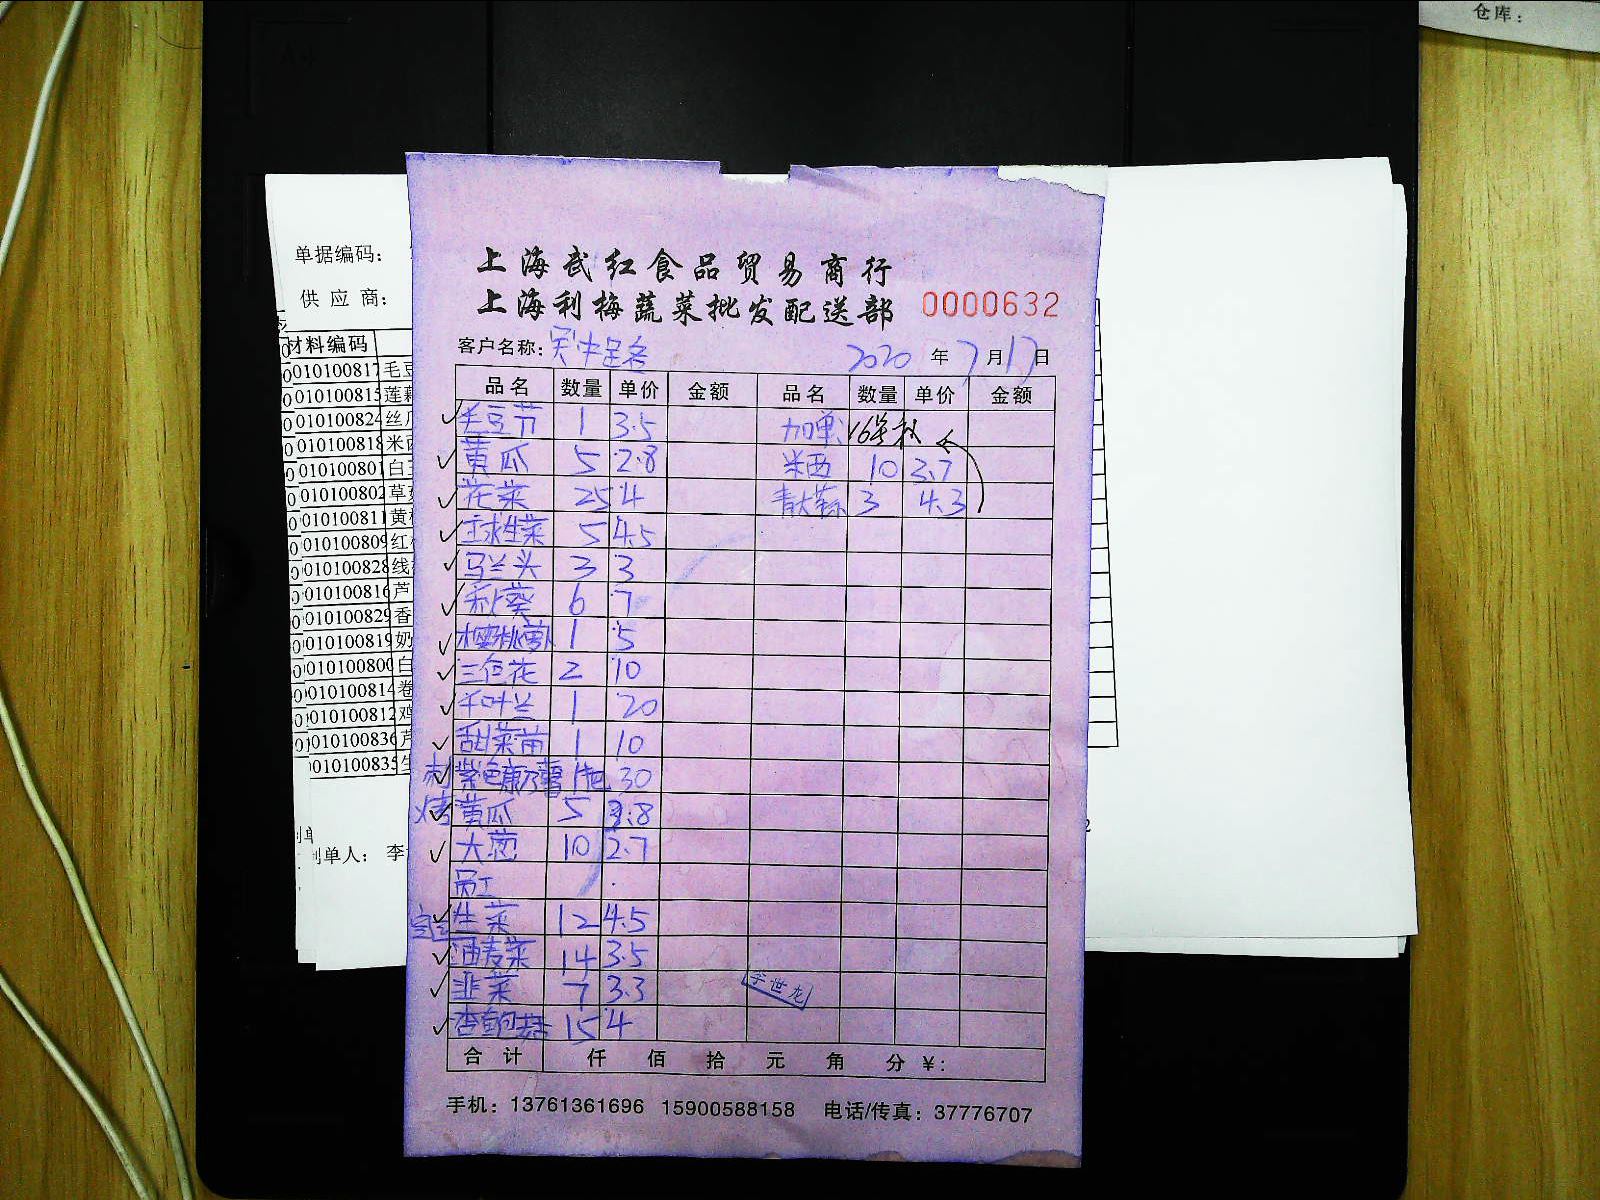 仓库：
单据编码：
供应商：
材料编码
010100817 毛豆
010100815 莲藕
010100824 丝瓜
010100818 米西
010100801 白玉
010100802 草菇
010100811 黄
010100809 红
010100828 线
010100816 芦
010100829 香
010100819 奶
010100800 白
010100814 卷
010100812 鸡
010100836 芦
010100835 生
制单人： 李
上海武红食品贸易商行
上海利梅蔬菜批发配送部 0000632
客户名称： 2020 年 7 月 17 日
品名 数量 单价 金额 品名 数量 单价 金额
毛豆节 1 3.5 加单: 16号
黄瓜 5 2.8 米西 10 3.7
花菜 25 4 青大蒜 3 4.3
球生菜 5 4.5
马兰头 3 3
秋葵 6 7
樱桃萝卜 1 5
三色花 2 10
千叶兰 1 20
甜菜苗 1 10
刺 紫色康乃馨 1把 30
烤 黄瓜 5 2.8
大葱 10 2.7
员工
生菜 12 4.5
油麦菜 14 3.5
韭菜 7 3.3 李世龙
杏鲍菇 15 4
合计 仟 佰 拾 元 角 分 ￥：
手机：13761361696 15900588158 电话/传真：37776707